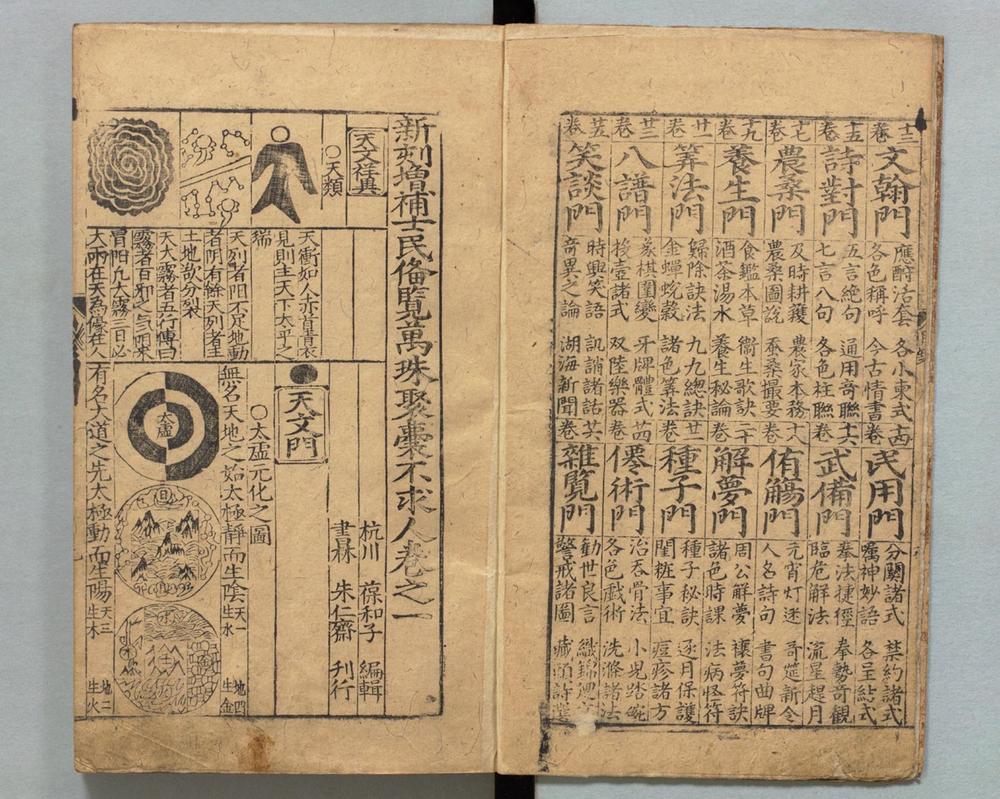 十三卷
文翰門
應酧活套 各小柬式
各色稱呼 今古情書
十四卷
民用門
分關諸式 禁約諸式
嘱神妙語 各呈結式
十五卷
詩對門
五言絶句 通用奇聯
七言八句 各色柱聯
十六卷
武備門
拳法捷徑 拳勢奇觀
臨危解法 流星趕月
十七卷
農桑門
及時耕穫 農家本務
農桑圖說 蚕桑撮要
十八卷
侑觴門
元宵灯迷 奇筵新令
人名詩句 書句曲牌
十九卷
養生門
食鑑本草 衛生歌訣
酒茶湯水 養生秘論
二十卷
解夢門
周公解夢 禳夢符訣
諸色時課 法病怪符
廿一卷
筭法門
歸除訣法 九九總訣
金蟬蛻殼 諸色筭法
廿二卷
種子門
種子秘訣 逐月保護
閨粧事宜 痘疹諸方
廿三卷
八譜門
象棋圍變 牙牌體式
投壺諸式 双陸樂器
廿四卷
僊術門
治吞骨法 小児踏碗
各色戲術 洗滌諸法
廿五卷
笑談門
時興笑語 訊誚諸話
竒異之論 湖海新聞
廿六卷
雜覽門
勧世良言 織錦迴
警戒諸圖 藏頭詩
新刻增補士民備覧萬珠聚囊不求人卷之一
杭川 葆和子 編輯
書林 朱仁齋 刊行
天文祥異
○天類
天衝如人赤首青衣
見則主天下太平之
瑞
天列者陽不足地動
者阴有餘天列者主
土地欲分裂
天大霧者五行傳曰
霧者百邪之气阴來
冐阳凢大霧三日必
大雨在天為濛在人
天文門
○太虛元化之圖
無名天地之始太極靜而生陰 天一生水 地四生金
太虛
有名大道之先太極動而生陽 天三生木 地二生火